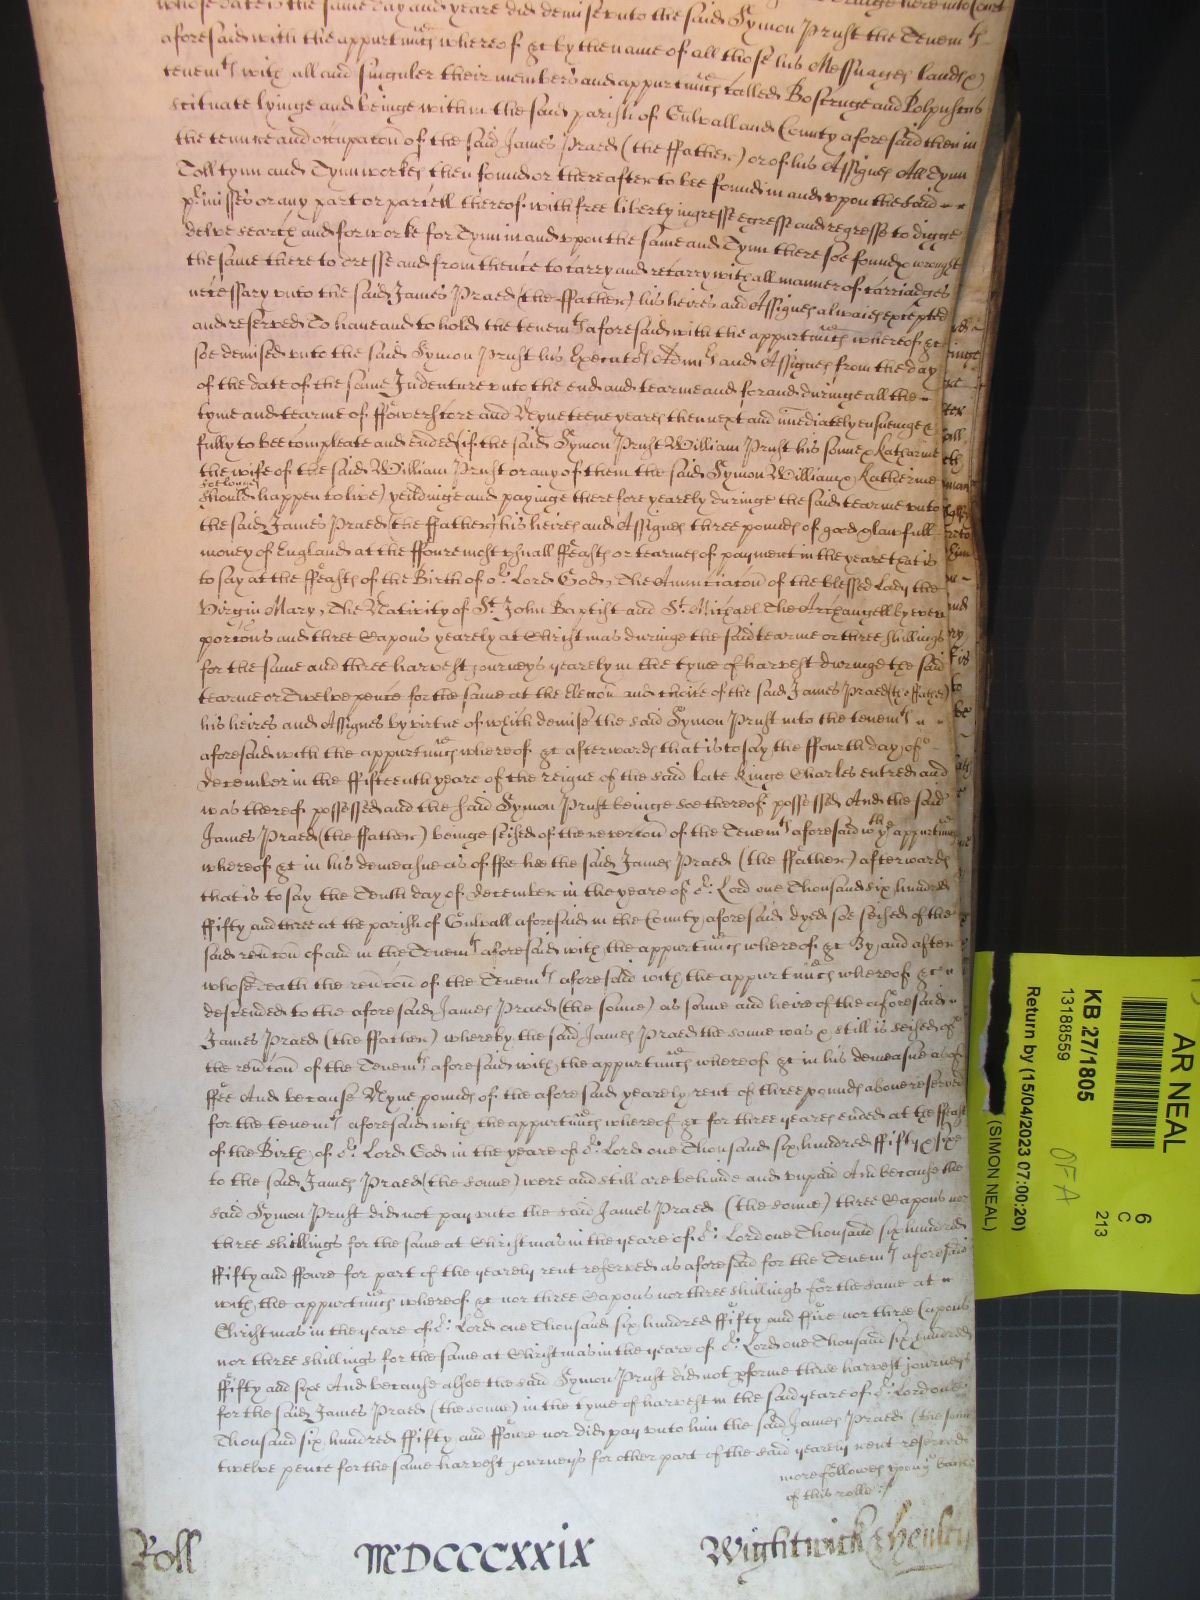 whose date is the same day and yeare did demise unto the said Symon Prust the Tenemts
aforesaid with the appurtnncs whereof &c by the name of all those his Messuages lands &
tenemts with all and singuler their members and appurtnncs called Boscruge and Polpushus
scituate lyinge and beinge within the said parish of Gulvall and County aforesaid then in
the tenure and occupacon of the said James Praed (the ffather) or of his Assignes All Tynn
Toll tynn and Tynn workes then found or thereafter to bee found in and upon the said
prmisses or any part or parcell thereof with free liberty ingresse egresse and regresse to digge
delve search and for worke for Tynn in and upon the same and Tynn there soe found &
the same there to dresse and from thence to carry and recarry with all manner of carriadges
necessary unto the said James Praed (the ffather) his heires and Assignes alwaies excepted
and reserved To have and to hold the tenemts aforesaid with the appurtnncs whereof &c
soe demised unto the said Symon Prust his Executors Admrs and Assignes from the day
of the date of the same Indenture unto the end and tearme and for and duringe all the
tyme and tearme of ffowerscore and Nyneteene yeares then next and imediately ensueinge &
fully to bee compleate and ended (if the said Symon Prust William Prust his sonne & Katharine
the wife of the said William Prust or any of them the said Symon William & Katherine
soe longe
should happen to live) yeildinge and payinge therefore yearely duringe the said tearme unto
the said James Praed (the ffather) his heires and Assignes three pounds of good & lawfull
money of England at the ffoure most usuall ffeasts or tearmes of payment in the yeare that is
to say at the ffeasts of the Birth of or Lord God, The Anunciacon of the blessed Lady the
Virgin Mary, The Nativity of St John Baptist and St Michael The Archangell by even
porcons and three Capons yearely at Christmas duringe the said tearme or three shillings
for the same and three harvest journeys yearely in the tyme of harvest duringe the said
tearme or Twelve pence for the same at the eleccon and choice of the said James Praed (the ffather)
his heires and Assignes by virtue of which demise the said Symon Prust into the tenemts
aforesaid with the appurtnncs whereof &c afterwards that is to say the ffourth day of
December in the ffifteenth yeare of the reigne of the said late Kinge Charles entred and
was thereof possessed and the said Symon Prust beinge soe thereof possessed And the said
James Praed (the ffather) beinge seised of the revercon of the Tenemts aforesaid wth ye appurtnncs
whereof &c in his demeasne as of ffee hee the said James Praed (the ffather) afterwards
that is to say the Tenth day of December in the yeare of or Lord one Thousand six hundred
ffifty and three at the parish of Gulvall aforesaid in the County aforesaid dyed soe seised of the
said revrcon of and in the Tenemts aforesaid with the appurtnncs whereof &c By and after
whose death the revrcon of the Tenemts aforesaid with the appurtnncs whereof &c
descended to the aforesaid James Praed (the sonne) as sonne and heire of the aforesaid
James Praed (the ffather) whereby the said James Praed the sonne was & still is seised of
the revrcon of the Tenemts aforesaid with the appurtnncs whereof &c in his demeasne as of
ffee And because Nyne pounds of the aforesaid yearely rent of three pounds above reserved
for the tenemts aforesaid with the appurtnncs whereof &c for three yeares ended at the ffeast
of the Birth of or Lord God in the yeare of or Lord one Thousand six hundred ffifty & sixe
to the said James Praed (the sonne) were and still are behinde and unpaid And because the
said Symon Prust did not pay unto the said James Praed (the sonne) three Capons nor
three shillings for the same at Christmas in the yeare of or Lord one Thousand six hundred
ffifty and ffoure for part of the yearely rent reserved as aforesaid for the Tenemts aforesaid
with the appurtnncs whereof &c nor three Capons nor three shillings for the same at
Christmas in the yeare of or Lord one Thousand six hundred ffifty and ffive nor three Capons
nor three shillings for the same at Christmas in the yeare of or Lord one Thousand six hundred
ffifty and sixe And because alsoe the said Symon Prust did not pforme three harvest journeys
for the said James Praed (the sonne) in the tyme of harvest in the said yeare of or Lord one
Thousand six hundred ffifty and ffoure nor did pay unto him the said James Praed (the sonne
twelve pence for the same harvest journeys for other part of the said yearely rent reserved
more followes upon ye backe
of this rolle
Roll MDCCCXXIX Wightwick & Henley
AR NEAL
6
C
213
KB 27/1805
13188559
OFA
Return by (15/04/2023 07:00:20)
(SIMON NEAL)